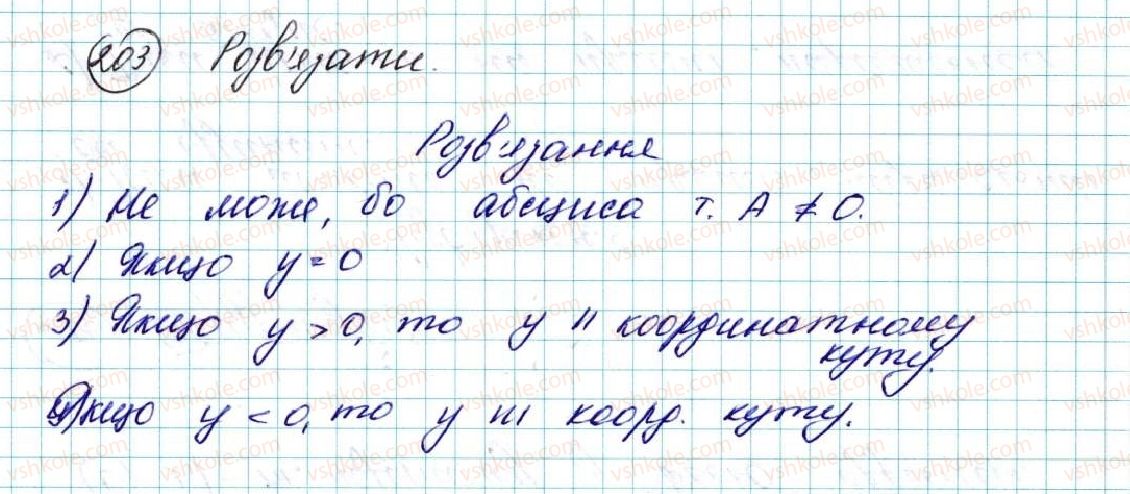 203 Розв'язати.
Розв'язання
1) Не може, бо абсциса т. А ≠ 0.
2) Якщо y = 0
3) Якщо y > 0, то у II координатному
куту.
Якщо y < 0, то у III коорд. куту.